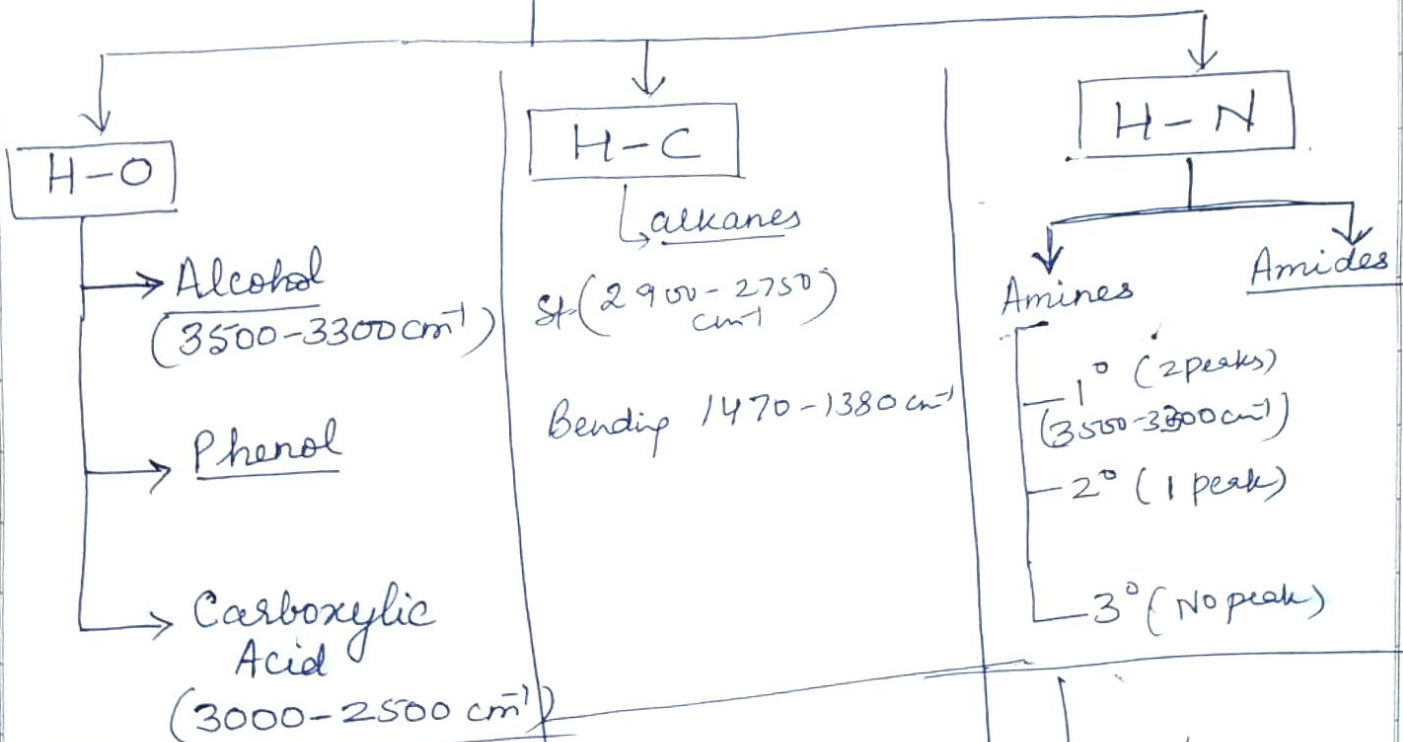 H-O
Alcohol
(3500-3300 cm⁻¹)
Phenol
Carboxylic
Acid
(3000-2500 cm⁻¹)
H-C
alkanes
St. (2900-2750)
cm⁻¹
Bending 1470-1380 cm⁻¹
H-N
Amines
Amides
1° (2 peaks)
(3500-3300 cm⁻¹)
2° (1 peak)
3° (No peak)